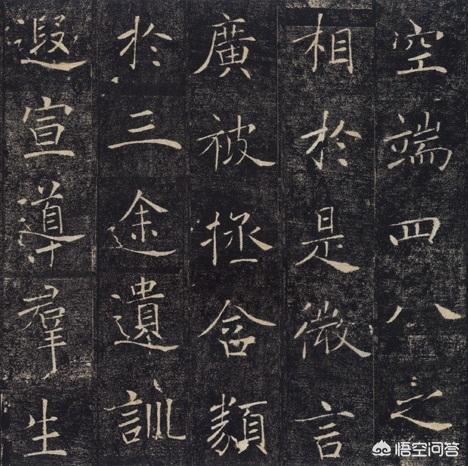 空端四八之
相於是微言
廣被拯含類
於三途遺訓
遐宣導羣生
悟空问答